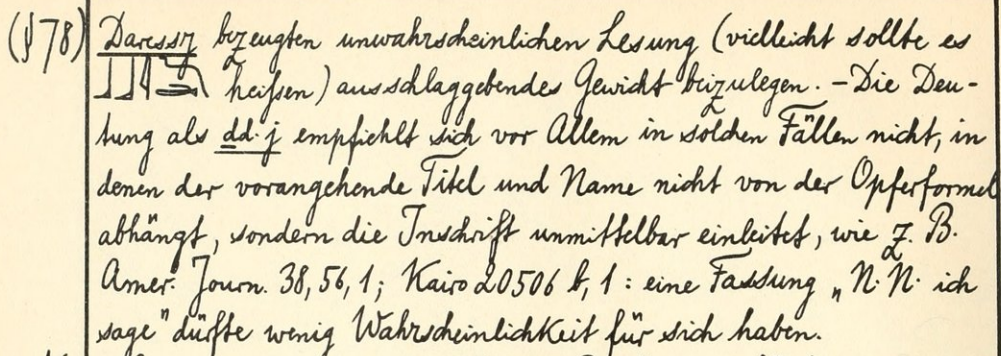 (§ 78) Daressy bezeugten unwahrscheinlichen Lesung (vielleicht sollte es
heißen) ausschlaggebendes Gewicht beizulegen. – Die Deu-
tung als ḏd·j empfiehlt sich vor Allem in solchen Fällen nicht, in
denen der vorangehende Titel und Name nicht von der Opferformel
abhängt, sondern die Inschrift unmittelbar einleitet, wie z. B.
Amer. Journ. 38, 56, 1; Kairo 20506 b, 1 : eine Fassung „N. N. ich
sage" dürfte wenig Wahrscheinlichkeit für sich haben.